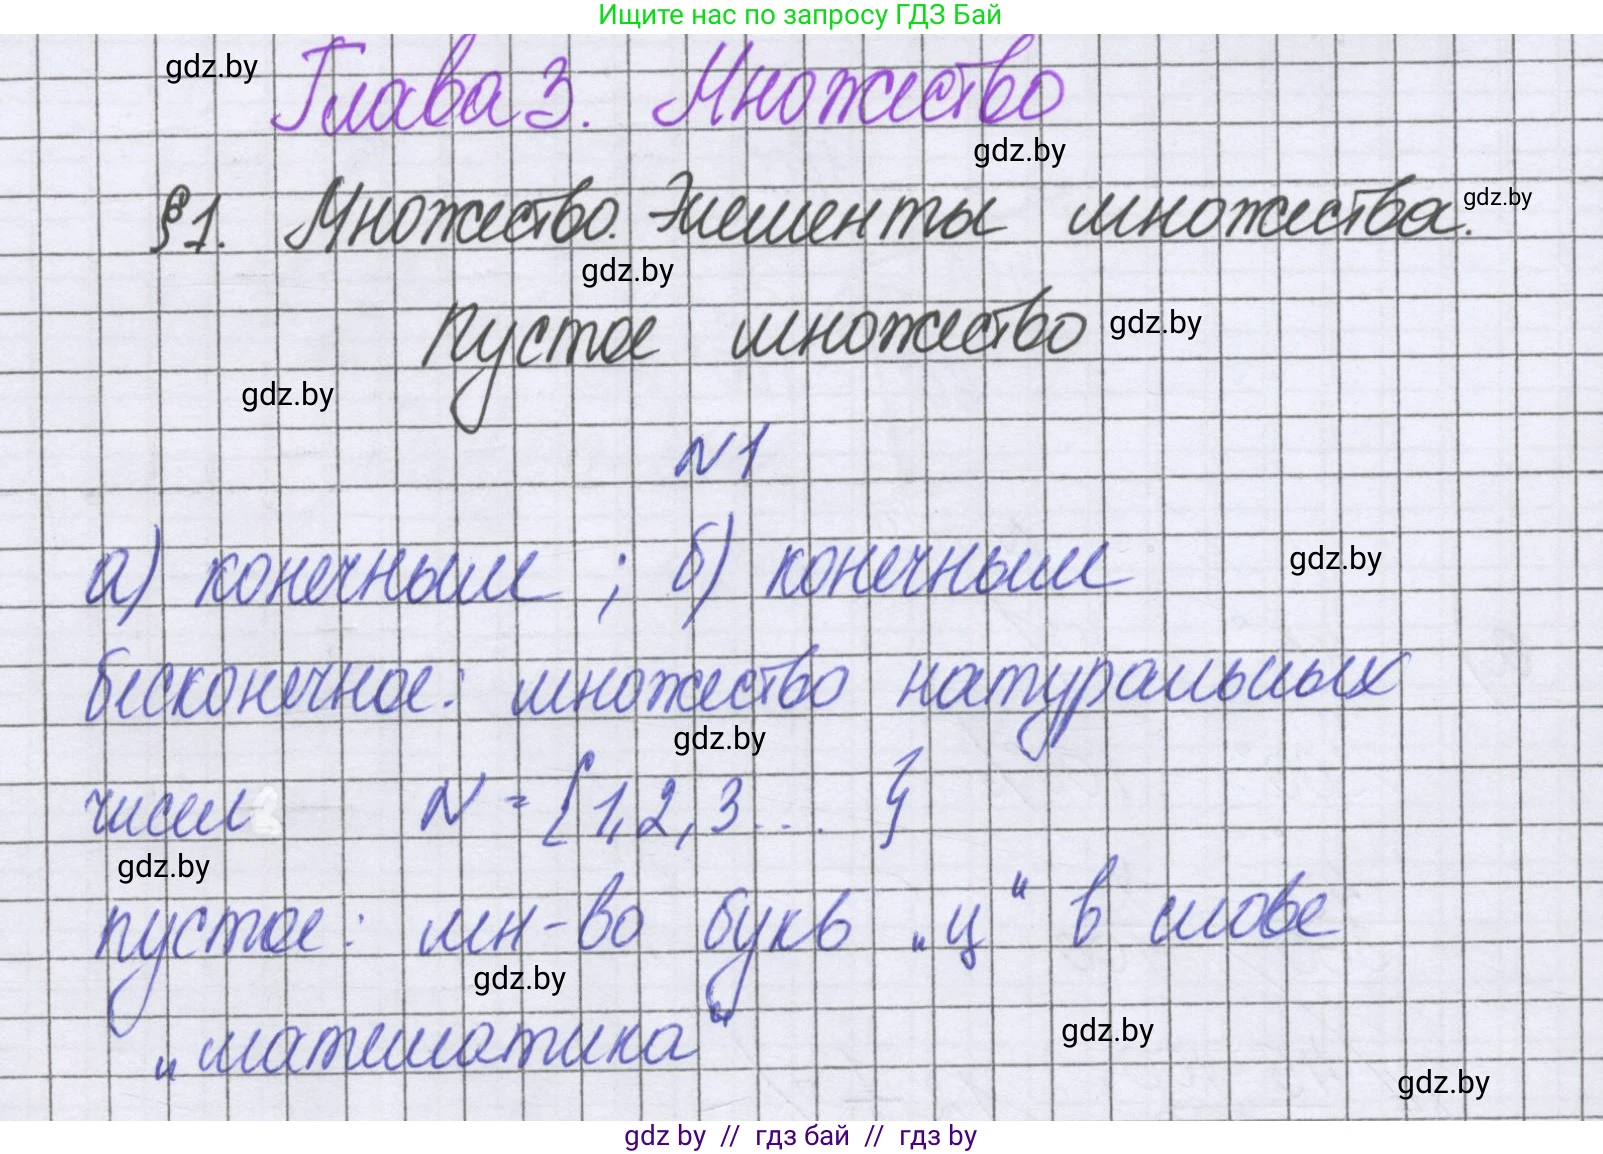 Ищите нас по запросу ГДЗ Бай
gdz.by
Глава 3. Множество
gdz.by
§1. Множество. Элементы множества.
gdz.by
gdz.by
пустое множество
gdz.by
gdz.by
N1
а) конечным ; б) конечным
gdz.by
бесконечное: множество натуральных
gdz.by
чисел N = {1,2,3... }
gdz.by
пустое: мн-во букв „ц“ в слове
gdz.by
„математика“
gdz.by
gdz.by
gdz by // гдз бай // гдз by